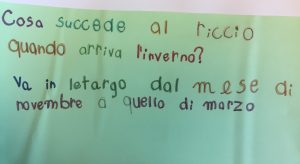 Cosa succede al riccio
quando arriva l'inverno?
Va in letargo dal mese di
novembre a quello di marzo